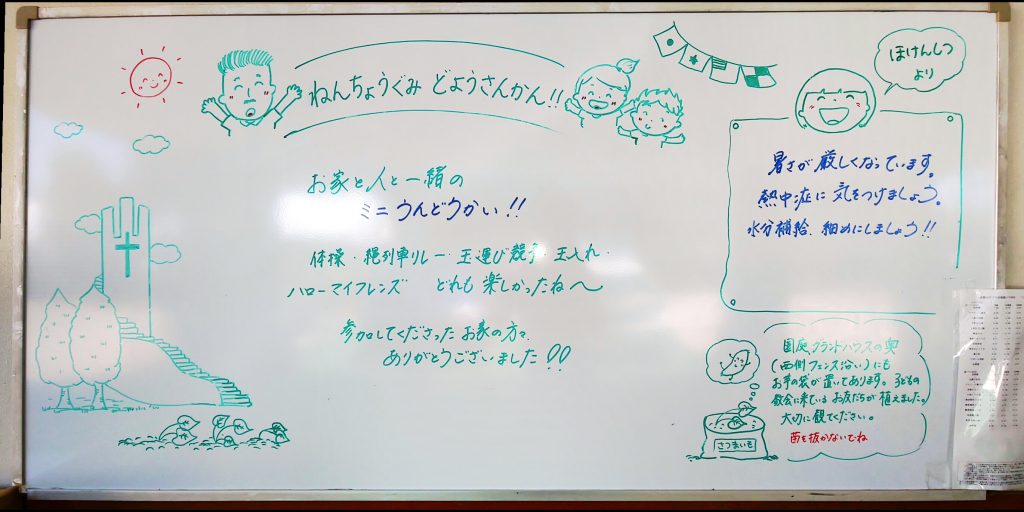 ねんちょうぐみ どようさんかん!!
お家と人と一緒の
ミニうんどうかい!!
体操・縄列車リレー・玉運び競争・玉入れ・
ハローマイフレンズ どれも楽しかったね〜
参加してくださったお家の方々
ありがとうございました!!
ほけんしつ
より
暑さが厳しくなっています。
熱中症に気をつけましょう。
水分補給、細めにしましょう!!
園庭、グランドハウスの奥
(西側フェンス沿い)にも
お芋の袋が置いてあります。子どもの
教会に来ているお友だちが植えました。
大切に観てください。
苗を抜かないでね
さつまいも